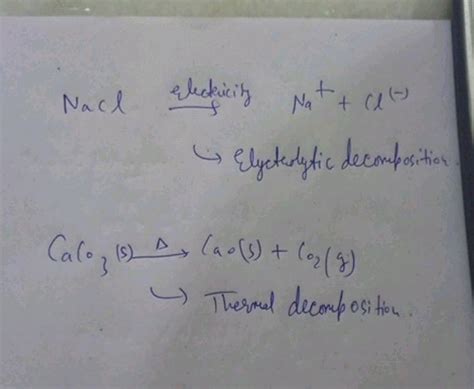 NaCl electricity → Na⁺ + Cl⁽⁻⁾
↳ Elycterolytic decomposition.
CaCO₃(s) Δ → CaO(s) + CO₂(g)
↳ Thermal decomposition.